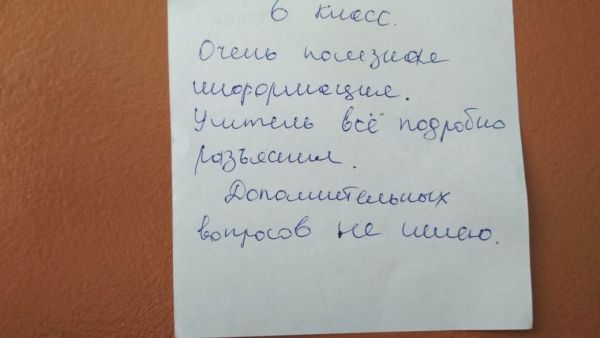 6 класс.
Очень полезная
информация.
Учитель всё подробно
разъяснил.
Дополнительных
вопросов не имею.